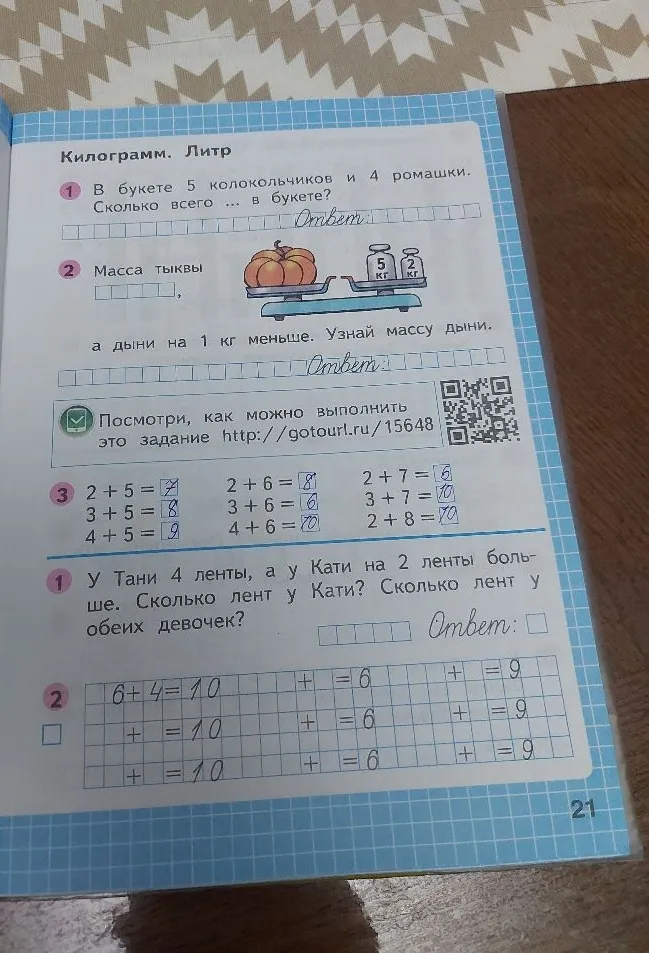 Килограмм. Литр
1 В букете 5 колокольчиков и 4 ромашки.
Сколько всего ... в букете?
Ответ:
2 Масса тыквы
,
5 кг 2 кг
а дыни на 1 кг меньше. Узнай массу дыни.
Ответ:
Посмотри, как можно выполнить
это задание http://gotourl.ru/15648
3 2 + 5 = 7 2 + 6 = 8 2 + 7 = 6
3 + 5 = 8 3 + 6 = 6 3 + 7 = 10
4 + 5 = 9 4 + 6 = 10 2 + 8 = 10
1 У Тани 4 ленты, а у Кати на 2 ленты боль-
ше. Сколько лент у Кати? Сколько лент у
обеих девочек?
Ответ:
2 6 + 4 = 10 + = 6 + = 9
+ = 10 + = 6 + = 9
+ = 10 + = 6 + = 9
21